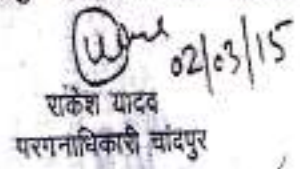 02/03/15
राकेश यादव
परगनाधिकारी चांदपुर